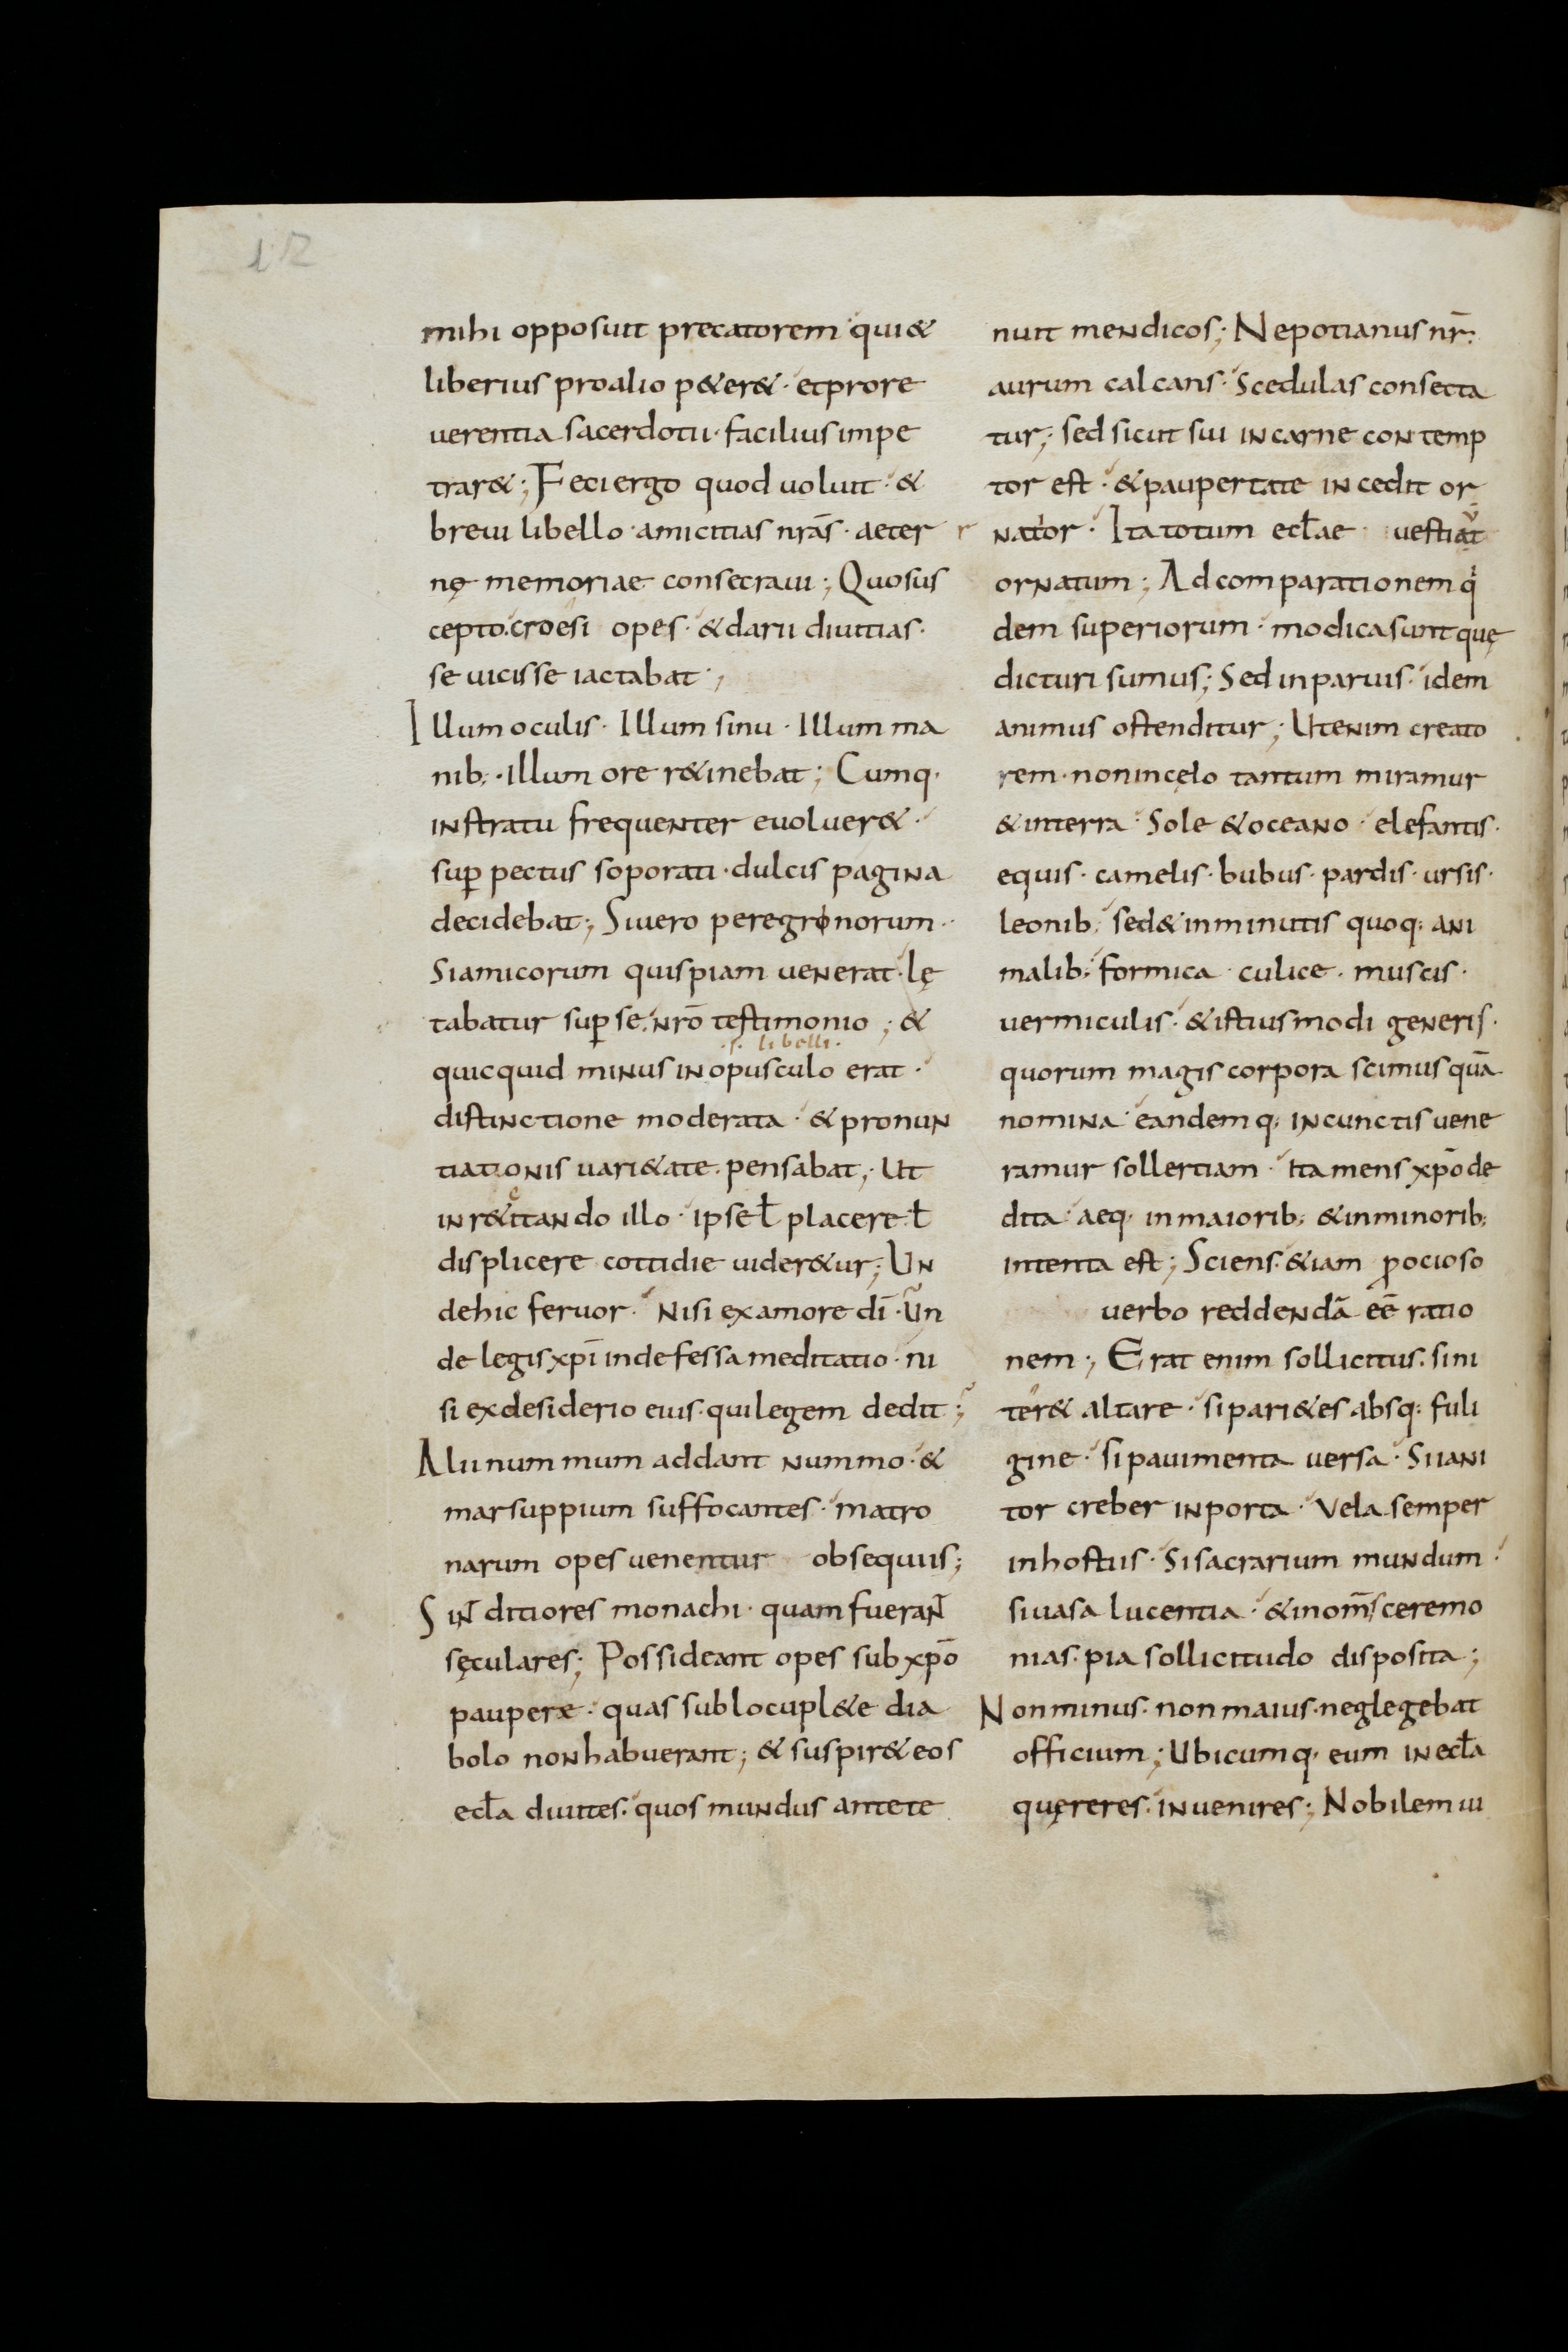 12
mihi opposuit precatorem qui &
liberius pro alio p&er& · et pro re
uerentia sacerdotii · facilius impe
trar& ; Feci ergo quod uoluit · &
breui libello · amicitias nr̄as · aeter
nę memoriae consecraui ; Quo sus
cepto · croesi opes · & darii diuitias ·
se uicisse iactabat ;
Illum oculis · Illum sinu · Illum ma
nib; · Illum ore r&inebat ; Cumq·
in stratu frequenter euoluer& ·
sup̄ pectus soporati · dulcis pagina
decidebat ; Si uero peregrinorum ·
Si amicorum quispiam uenerat · lę
tabatur sup̄ se nr̄o testimonio ; &
·s· libelli·
quicquid minus in opusculo erat ·
distinctione moderata · & pronun
tiationis uari&ate · pensabat ; Ut
in r&citando illo · ipse ł placere ł
displicere cottidie uider&ur ; Un
de hic feruor · Nisi ex amore dī · Un
de legis xp̄i indefessa meditatio · ni
si ex desiderio eius · qui legem dedit ;
Alii nummum addant nummo · &
marsuppium suffocantes · matro
narum opes uenentur obsequiis ;
Sint ditiores monachi · quam fuerant
sęculares ; Possideant opes sub xp̄o
paupere · quas sub locupl&e dia
bolo non habuerant ; & suspir& eos
eccła diuites · quos mundus ante te
nuit mendicos ; Nepotianus nr̄ :
aurum calcans · Scedulas consecta
tur ; sed sicut sui in carne contemp
tor est · & paupertate incedit or
r natior · Ita totum ecłae uestiat
ornatum ; Ad comparationem qi
dem superiorum · modica sunt quę
dicturi sumus ; Sed in paruis · idem
animus ostenditur ; Ut enim creato
rem · non in cęlo tantum miramur
& in terra · Sole & oceano · elefantis ·
equis · camelis · bubus · pardis · ursis ·
leonib; sed & in minutis quoq; ani
malib; formica · culice · muscis ·
uermiculis · & istiusmodi generis ·
quorum magis corpora scimus quā
nomina · eandemq; in cunctis uene
ramur sollertiam · Ita mens xp̄o de
dita · aeq· in maiorib; & in minorib;
intenta est ; Sciens · &iam p̄ ocioso
uerbo reddendā eē ratio
nem ; Erat enim sollicitus · si ni
ter& altare · si pari&es absq; fuli
gine · si pauimenta uersa · Si iani
tor creber in porta · Vela semper
in hostiis · Si sacrarium mundum ·
si uasa lucentia · & in om̄s ceremo
nias · pia sollicitudo disposita ;
Non minus · non maius · neglegebat
officium ; Ubicumq· eum in ecła
quęreres · inuenires ; Nobilem ui